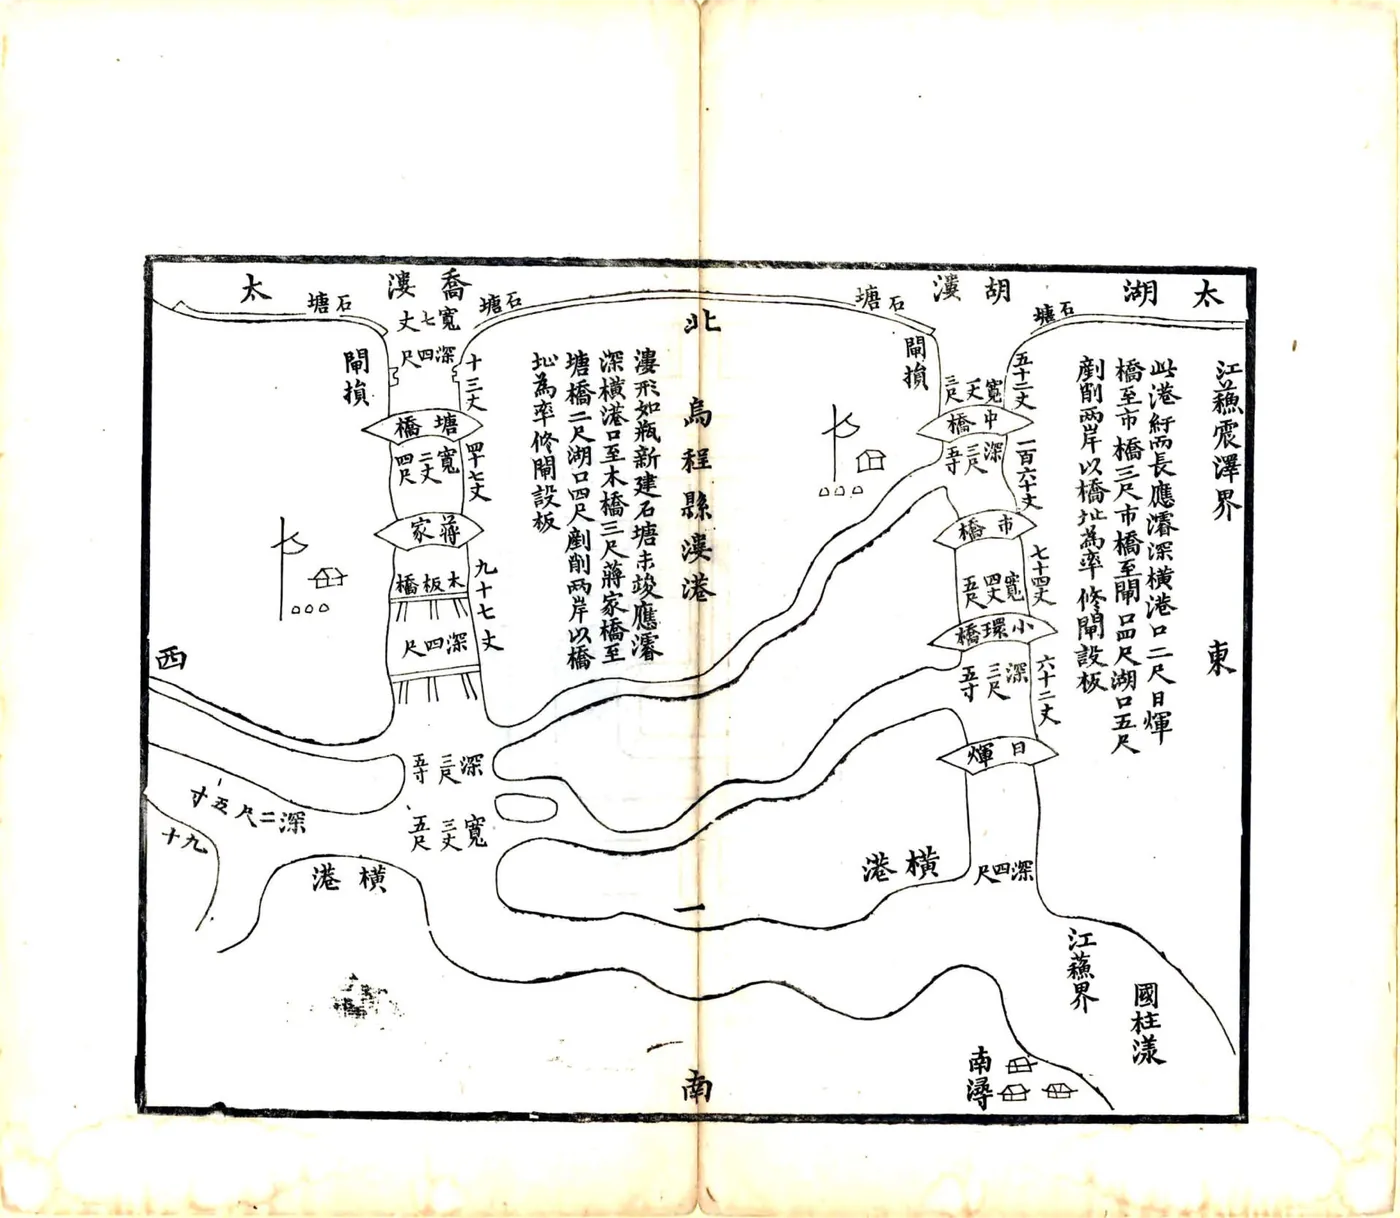 太湖
江蘇震澤界
東
此港紆而長應濬深橫港口二尺日輝
橋至市橋三尺市橋至閘口四尺湖口五尺
剷削兩岸以橋址為率修閘設板
石塘
胡漊
五十二丈
寬一丈三尺
中橋
深三尺五寸
一百六十丈
市橋
七十四丈
寬四丈五尺
小環橋
六十二丈
深三尺五寸
日輝
深四尺
江蘇界
國柱漾
南潯
橫港
閘損
石塘
北
烏程縣漊港
一
南
漊形如瓶新建石塘未竣應濬
深橫港口至木橋三尺蔣家橋至
塘橋二尺湖口四尺剷削兩岸以橋
址為率修閘設板
石塘
喬漊
寬七丈
深四尺
十三丈
塘橋
寬二丈四尺
四十七丈
蔣家
木板橋
九十七丈
深四尺
深三尺五寸
寬三丈五尺
石塘
太
閘損
西
深二尺五寸
九十
橫港